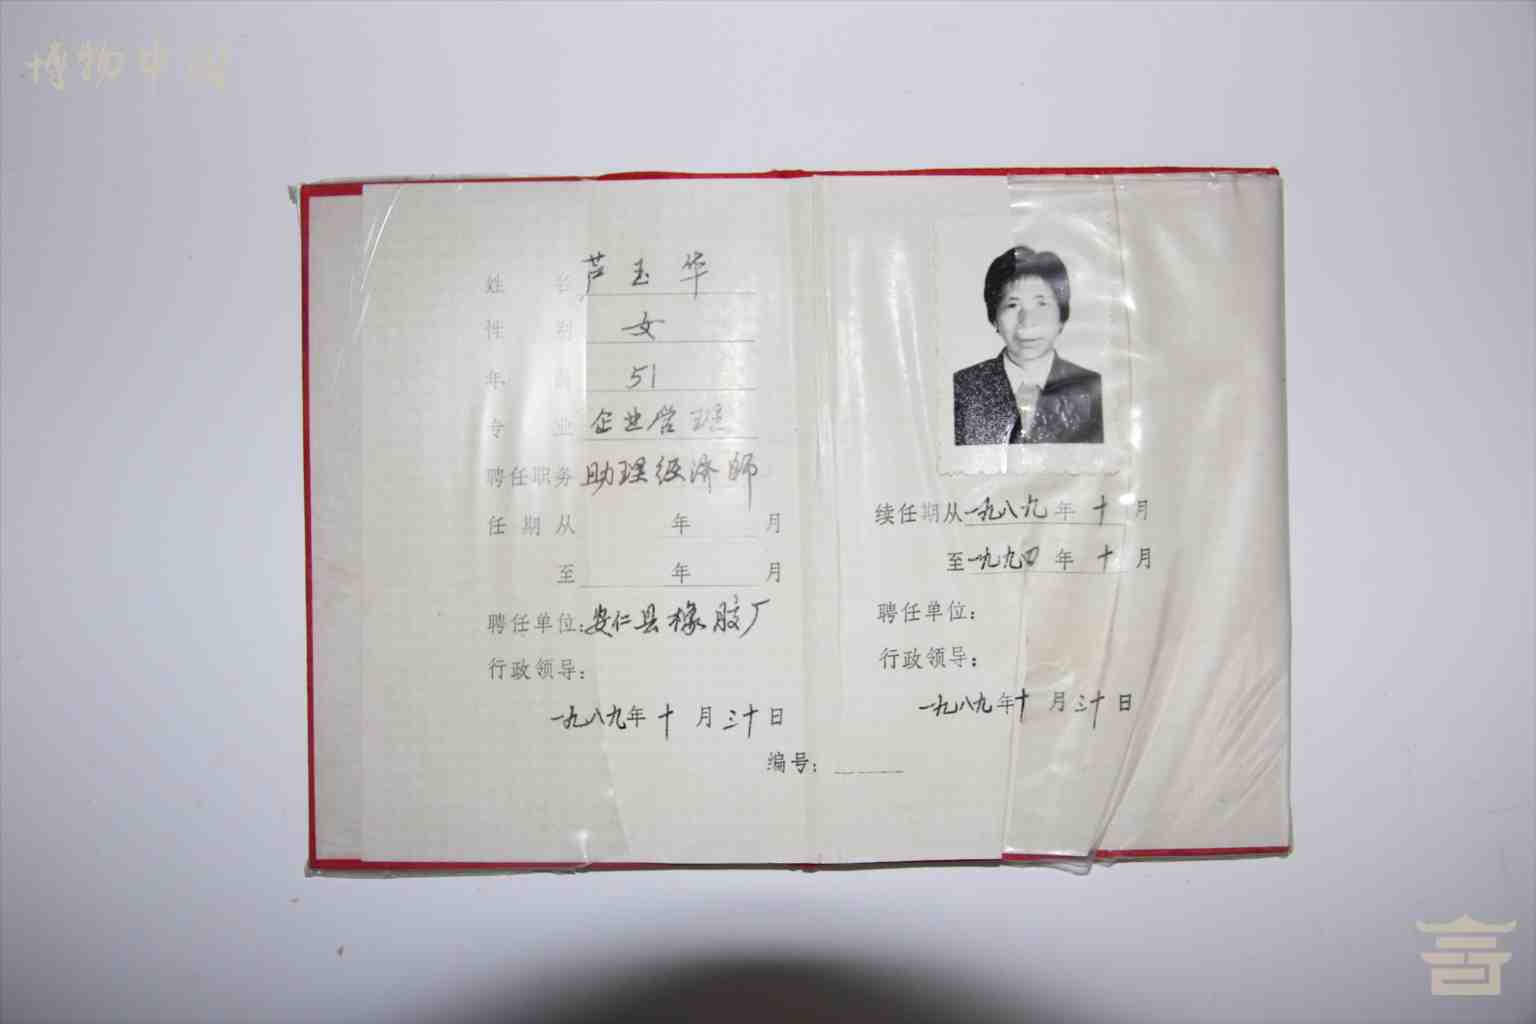 博物中国
姓名 芦玉华
性别 女
年龄 51
专业 企业管理
聘任职务 助理经济师
任期从 年 月
至 年 月
聘任单位:安仁县橡胶厂
行政领导:
一九八九年十月三十日
续任期从一九八九年十月
至一九九四年十月
聘任单位:
行政领导:
一九八九年十月三十日
编号: